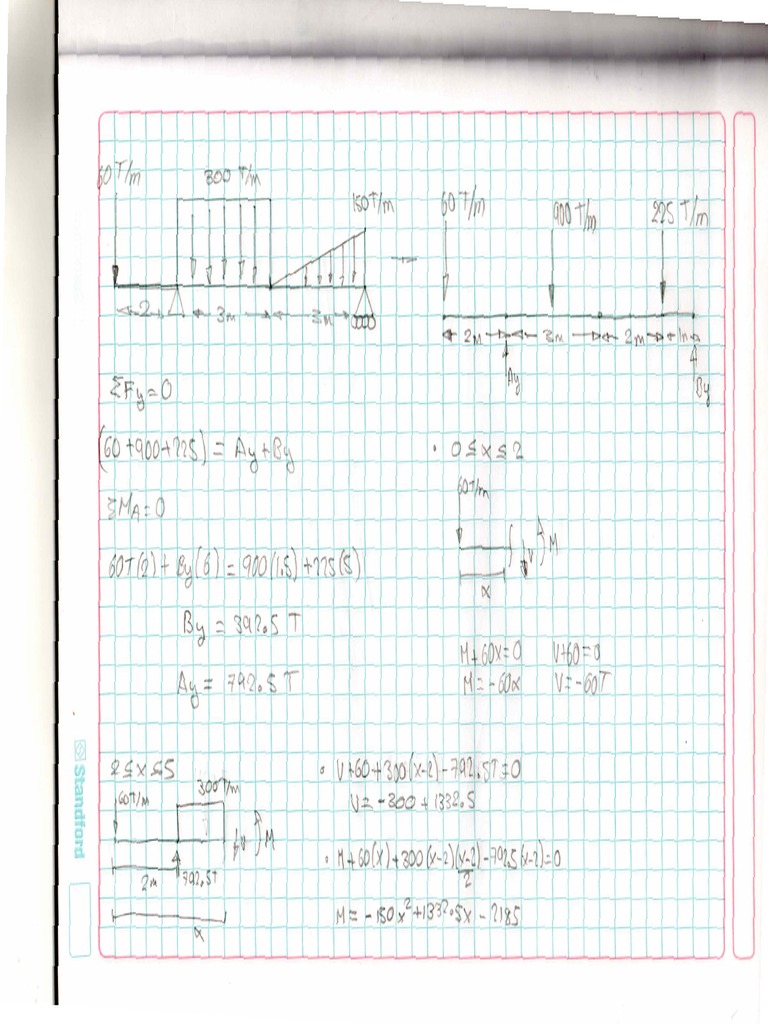 60 T/m 300 T/m 150 T/m
2 3m 3m
60 T/m 900 T/m 225 T/m
2m 3m 2m 1m
Ay By
ΣFy=0
(60+900+225) = Ay+By
ΣMA=0
60T(2) + By(6) = 900(1.5)+225(5)
By = 392.5 T
Ay = 792.5 T
• 0≤x≤2
60T/m
V M
x
M+60x=0 V+60=0
M=-60x V=-60T
2≤x≤5
60T/m 300T/m
V M
2m 792.5T
x
• V+60+300(x-2)-792.5T=0
V=-300+1332.5
• M+60(x)+300(x-2)(x-2)/2-792.5(x-2)=0
M=-150x²+1332.5x-2185
Standford